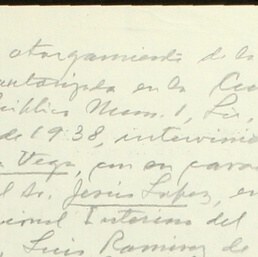 otorgamiento de la
autorizada en la
Público Num. 1, Lic,
de 1938, intervini
Vega, con su
el Sr. Jesús Lopez, en
cional Interino del
Luis Ramirez de